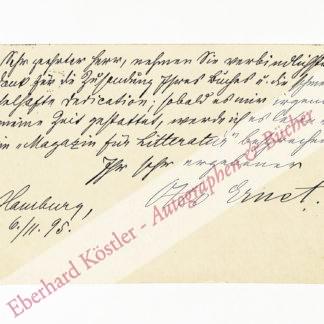 Sehr geehrter Herr, nehmen Sie verbindlichsten
Dank für die Zusendung Ihres Buches u. die schmei-
chelhafte Dedication; sobald es mir irgend
meine Zeit gestattet, werde ich es lesen u.
im „Magazin für Litteratur" besprechen
Ihr sehr ergebener
Otto Ernst.
Hamburg,
6./11. 95.
Eberhard Köstler - Autographen & Bücher